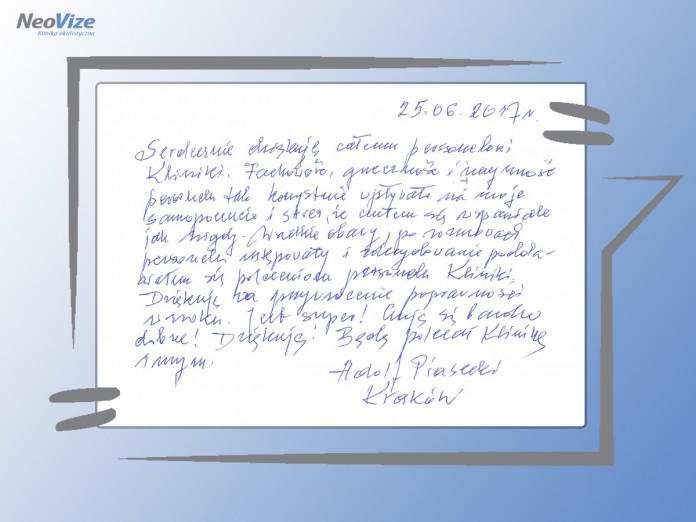 NeoVize
Klinika okulistyczna
25.06.2017r.
Serdecznie dziękuję całemu personelowi
Kliniki. Fachowość, grzeczność i
personelu tak korzystnie wpływały na moje
samopoczucie i stres, że czułem się wspaniale
jak nigdy. Wszelkie obawy, po rozmowach
personelu ustępowały i zdecydowanie podda-
wałem się poleceniom personelu Kliniki.
Dziękuję za przywrócenie poprawności
wzroku. Jest super! Czuję się bardzo
dobrze! Dziękuję! Będę polecał Klinikę
innym.
Adolf Piasecki
Kraków